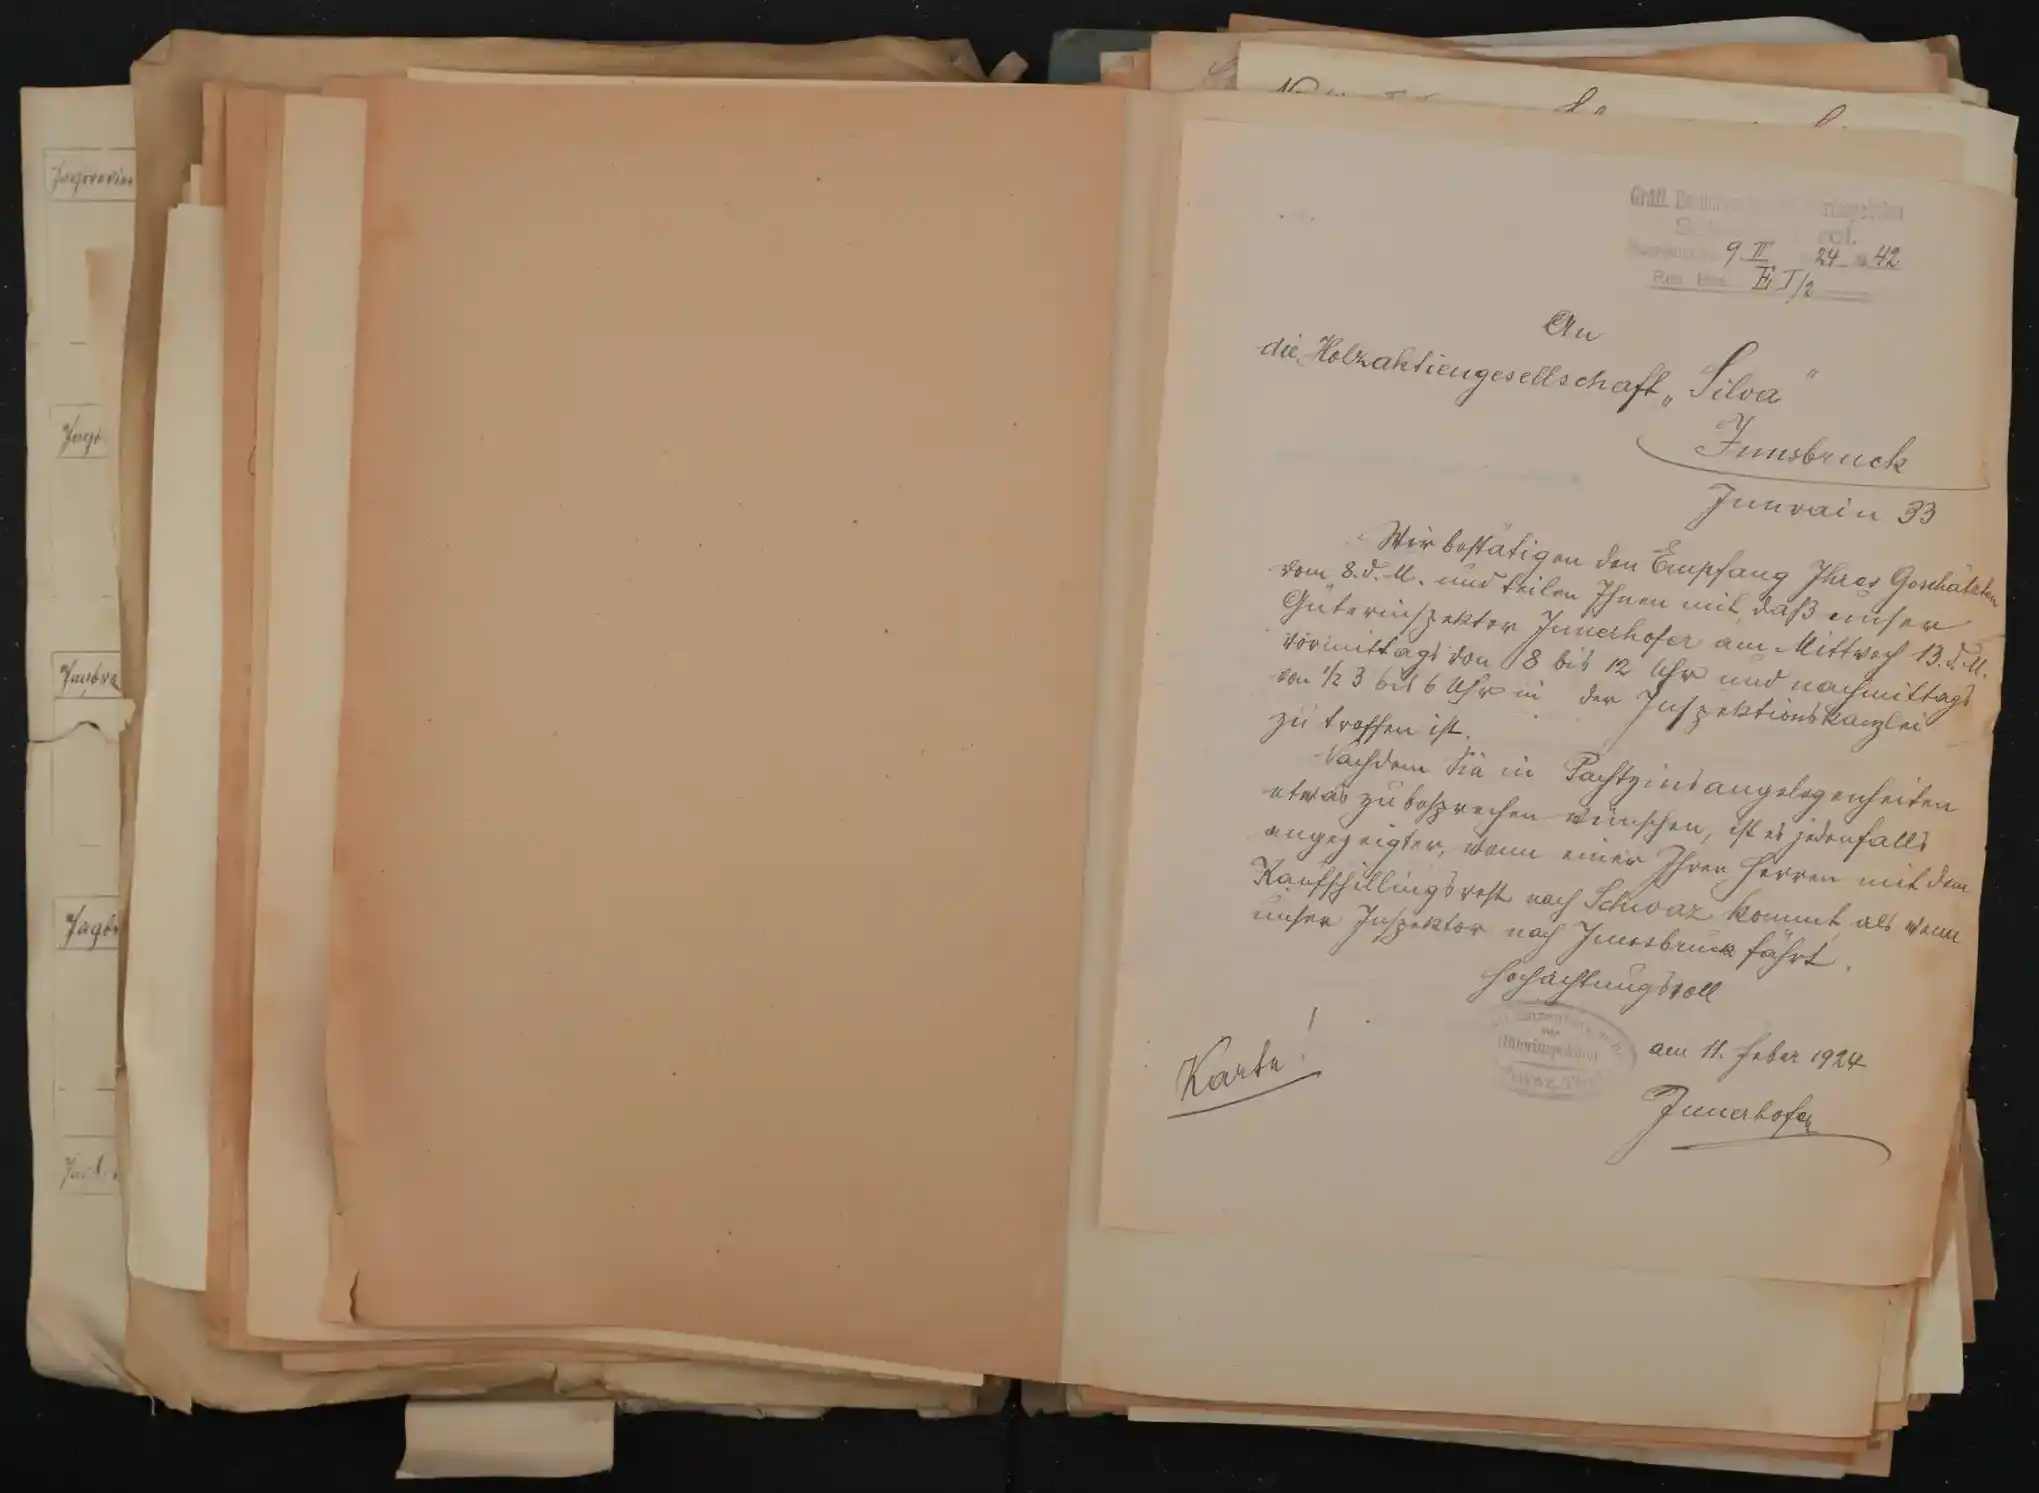 Jagdrevier
Jagd
Innsbru
Jagdb
Jagd
Gräfl. Güterinspektion
9 II 24 42
E I/2
An
die Holzaktiengesellschaft „Silva"
Innsbruck
Innrain 33
Wir bestätigen den Empfang Ihres Geschätzten
vom 8. d. M. und teilen Ihnen mit, daß unser
Güterinspektor Innerhofer am Mittwoch 13. d. M.
vormittags von 8 bis 12 Uhr und nachmittags
von 1/2 3 bis 6 Uhr in der Inspektionskanzlei
zu treffen ist.
Nachdem Sie in Pachtzinsangelegenheiten
etwas zu besprechen wünschen, ist es jedenfalls
angezeigter, wenn einer Ihrer Herren mit dem
Kaufschillingsrest nach Schwaz kommt, als wenn
unser Inspektor nach Innsbruck fährt.
Hochachtungsvoll
Güterinspektion
am 11. Feber 1924
Karte!
Innerhofer